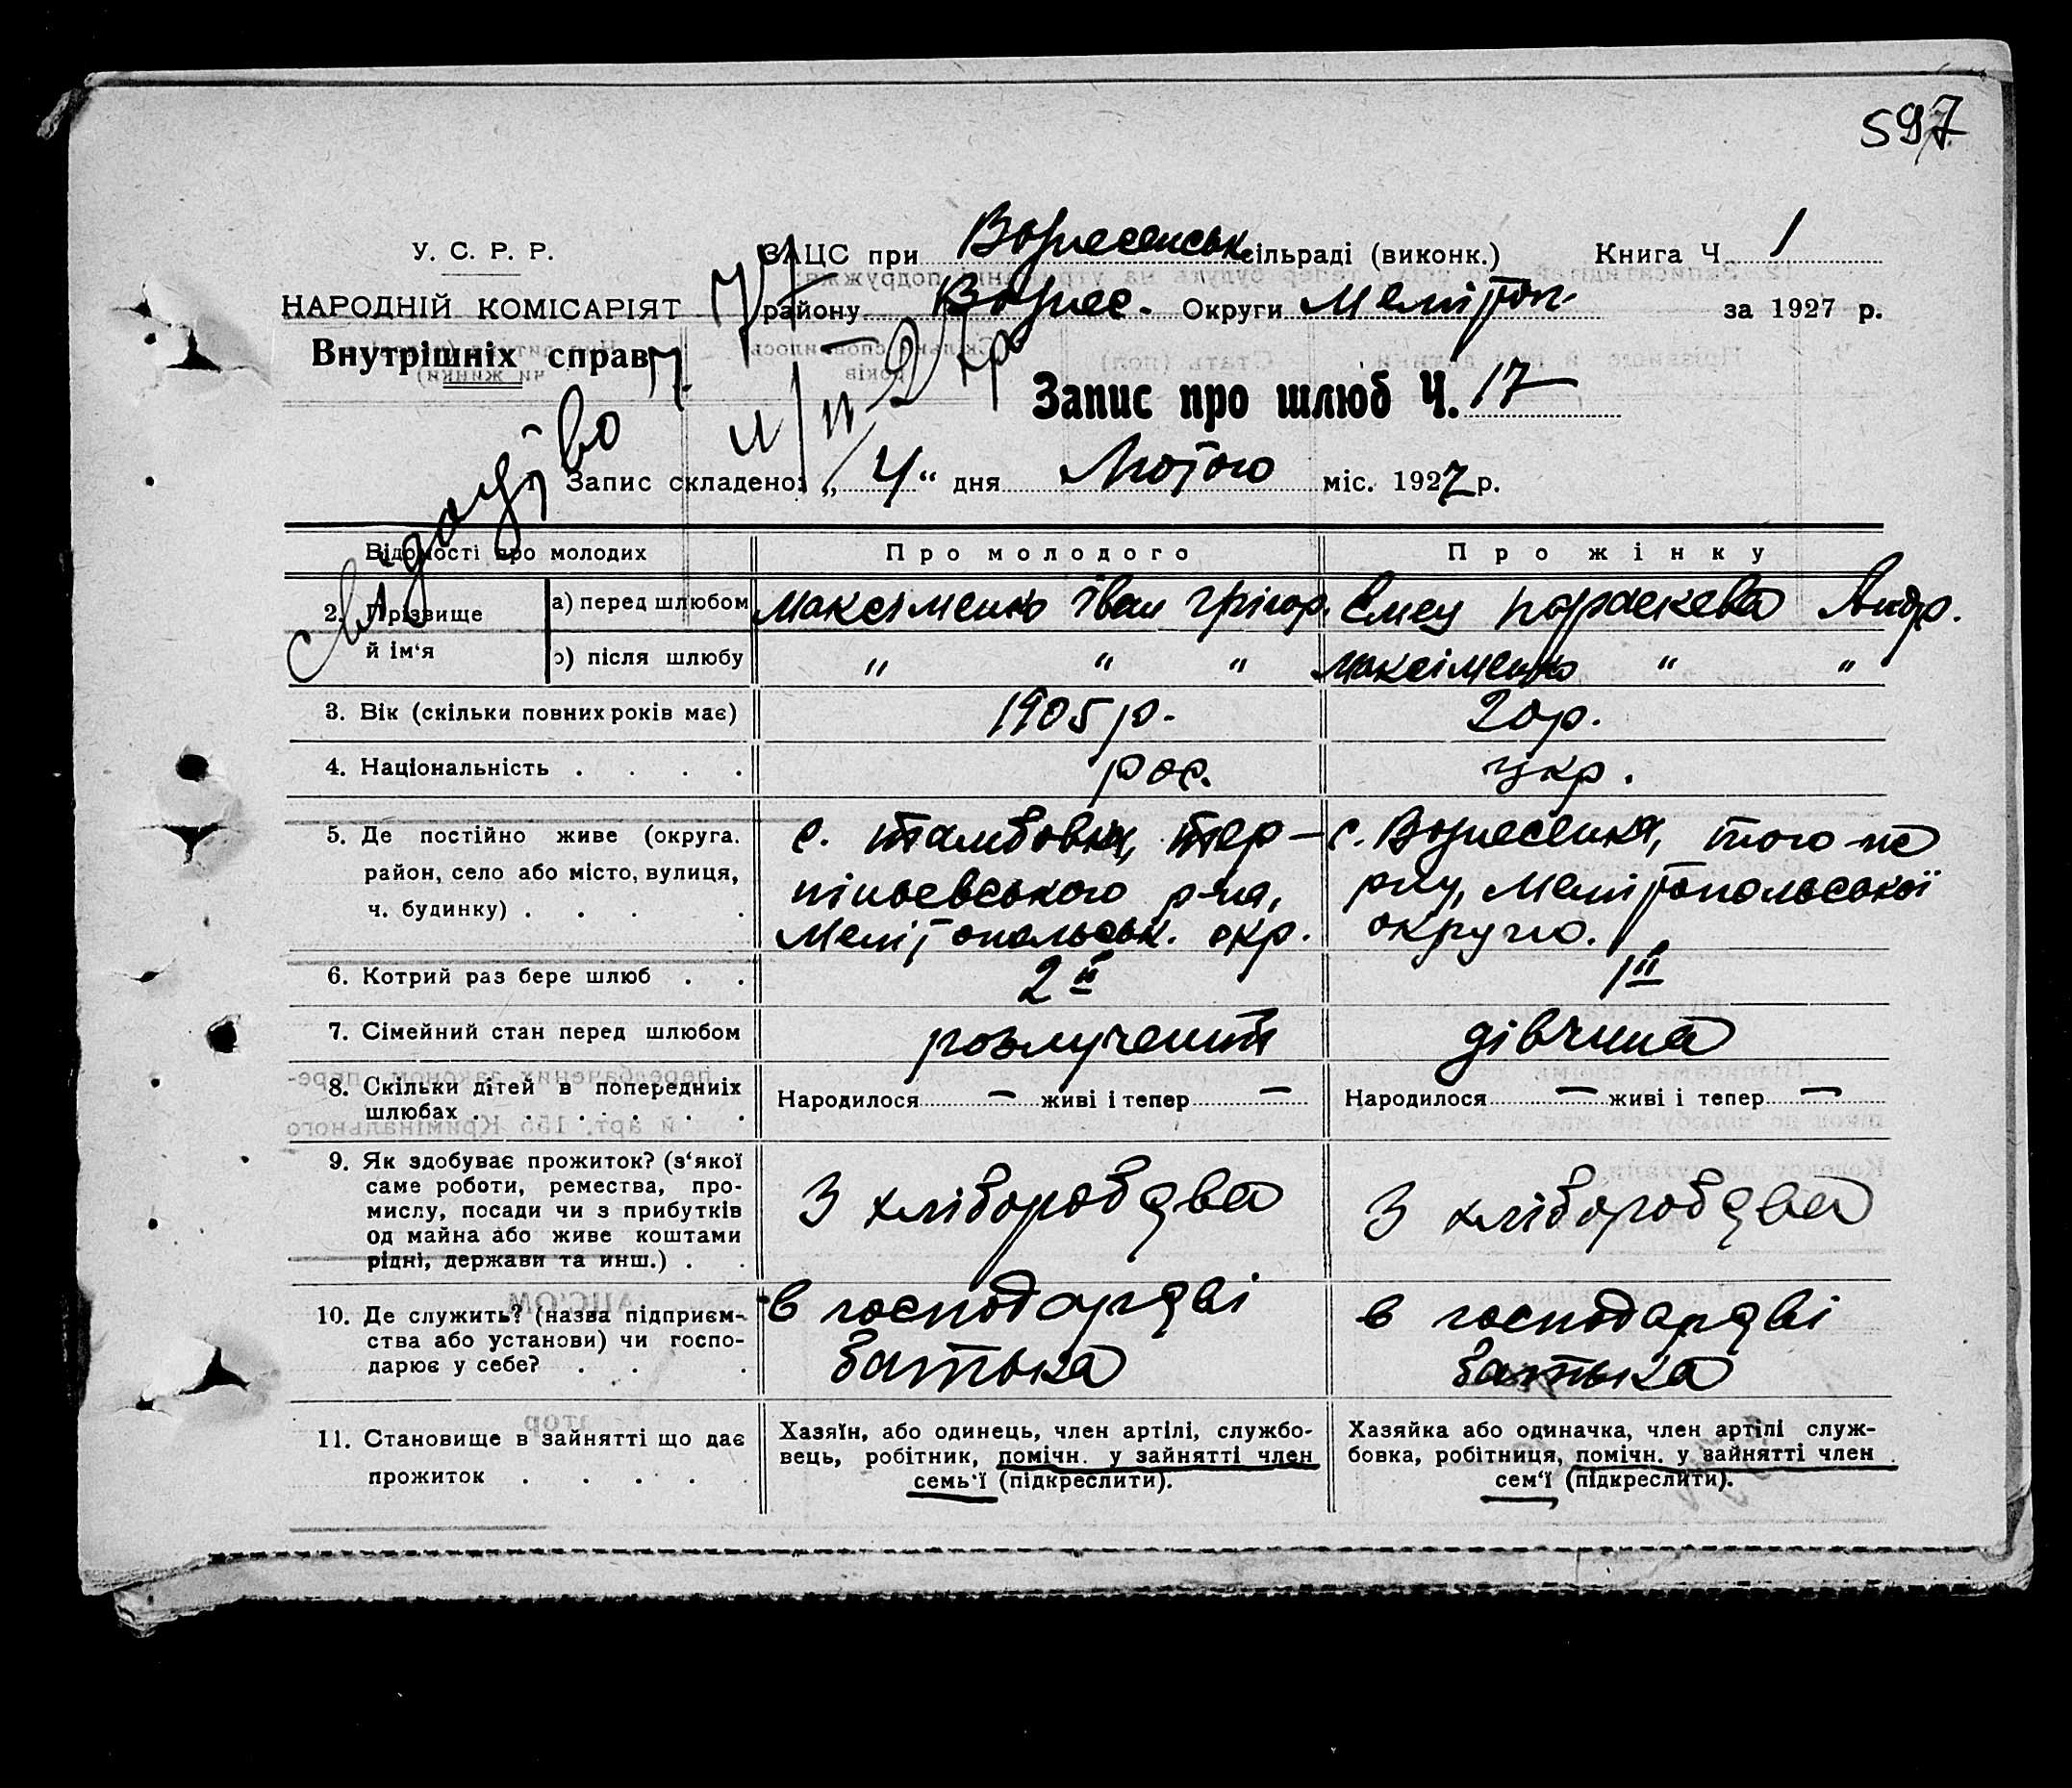 597
У. С. Р. Р.
НАРОДНІЙ КОМІСАРІЯТ
Внутрішніх справ
ЗАЦС при Вознесенськ сільраді (виконк.) Книга Ч. 1
району Вознес. Округи Мелітоп. за 1927 р.
Запис про шлюб Ч. 17
Запис складено: „4“ дня Лютого міс. 1927 р.
Відомості про молодих
Про молодого
Про жінку
2. Прізвище й ім‘я
а) перед шлюбом
Максіменко Іван Грігор.
Ємец Параскева Андр.
б) після шлюбу
" " "
Максіменко " "
3. Вік (скільки повних років має)
1905 р.
20 р.
4. Національність . . . .
рос.
укр.
5. Де постійно живе (округа.
район, село або місто, вулиця,
ч. будинку) . . . .
с. Тамбовка, Тер-
піньевського р-на,
Мелітопольськ. окр.
с. Вознесенка, того-же
р-ну, Мелітопольської
округи.
6. Котрий раз бере шлюб . .
2й
1й
7. Сімейний стан перед шлюбом
розлучений
дівчина
8. Скільки дітей в попередніх
шлюбах . . . . . .
Народилося — живі і тепер —
Народилося — живі і тепер —
9. Як здобуває прожиток? (з‘якої
саме роботи, ремества, про-
мислу, посади чи з прибутків
од майна або живе коштами
рідні, держави та инш.) . .
З хліборобства
З хліборобства
10. Де служить? (назва підприєм-
ства або установи) чи госпо-
дарює у себе? . . .
в господарстві
батька
в господарстві
батька
11. Становище в зайнятті що дає
прожиток . . . . .
Хазяїн, або одинець, член артілі, службо-
вець, робітник, помічн. у зайнятті член
семь‘ї (підкреслити).
Хазяйка або одиначка, член артілі служ-
бовка, робітниця, помічн. у зайнятті член
сем‘ї (підкреслити).